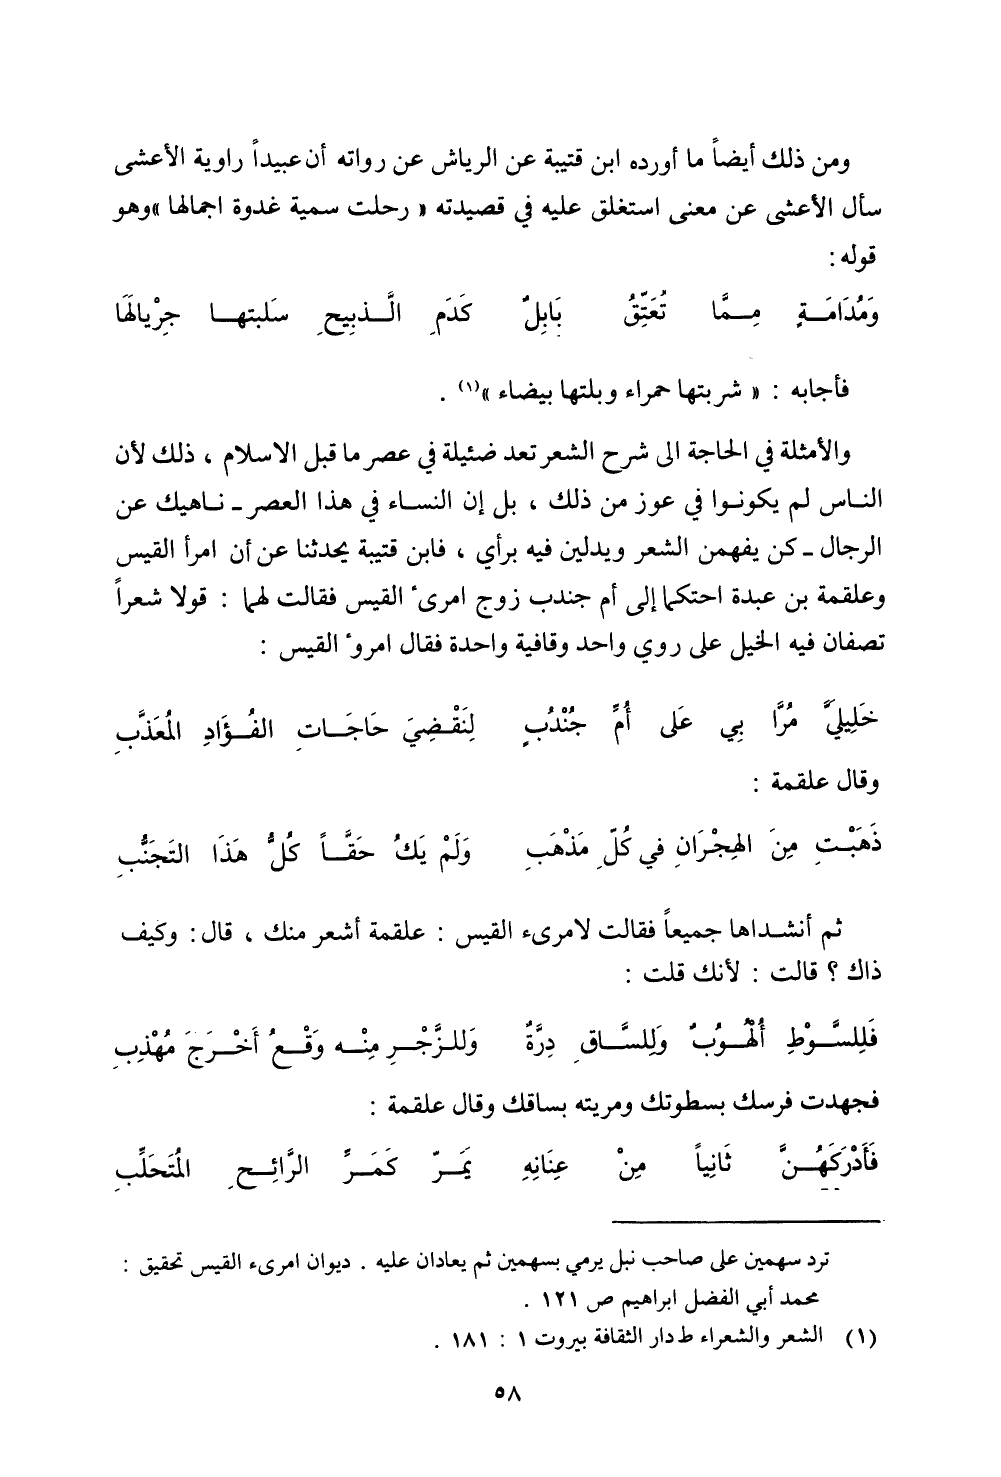 ومن ذلك أيضاً ما أورده ابن قتيبة عن الرياش عن رواته أن عبيداً راوية الأعشى
سأل الأعشى عن معنى استغلق عليه في قصيدته « رحلت سمية غدوة اجمالها »وهو
قوله :
وَمُدَامَةٍ مِمَّا تُعَتِّقُ بَابِلٌ كَدَمِ الَّذبِيحِ سَلبتها جِرْيالَهَا
فأجابه : « شربتها حمراء وبلتها بيضاء »(١) .
والأمثلة في الحاجة الى شرح الشعر تعد ضئيلة في عصر ما قبل الاسلام ، ذلك لأن
الناس لم يكونوا في عوز من ذلك ، بل إن النساء في هذا العصر ـ ناهيك عن
الرجال ـ كن يفهمن الشعر ويدلين فيه برأي ، فابن قتيبة يحدثنا عن أن امرأ القيس
وعلقمة بن عبدة احتكما إلى أم جندب زوج امرىء القيس فقالت لهما : قولا شعراً
تصفان فيه الخيل على روي واحد وقافية واحدة فقال امروء القيس :
خَلِيلَيَّ مُرَّا بِي عَلى أُمِّ جُنْدُبٍ لِنَقْضِيَ حَاجَاتِ الفُؤَادِ المُعَذَّبِ
وقال علقمة :
ذَهَبْتِ مِنَ الهِجْرَانِ في كُلِّ مَذْهَبِ وَلَمْ يَكُ حَقَّاً كُلُّ هَذَا التَجَنُّبِ
ثم أنشداها جميعاً فقالت لامرىء القيس : علقمة أشعر منك ، قال : وكيف
ذاك ؟ قالت : لأنك قلت :
فَلِلسَّوْطِ أُلْهُوبٌ وَلِلسَّاقِ دِرَّةٌ وَللزَّجْرِ مِنْه وَقْعُ أَخْرَجَ مُهْذِبِ
فجهدت فرسك بسطوتك ومريته بساقك وقال علقمة :
فَأَدْرَكَهُنَّ ثَانِياً مِنْ عِنَانِهِ يَمَرّ كَمَرِّ الرَّائِحِ المُتَحَلِّبِ
ترد سهمين على صاحب نبل يرمي بسهمين ثم يعادان عليه . ديوان امرىء القيس تحقيق :
محمد أبي الفضل ابراهيم ص ١٢١ .
(١) الشعر والشعراء ط دار الثقافة بيروت ١ : ١٨١ .
٥٨